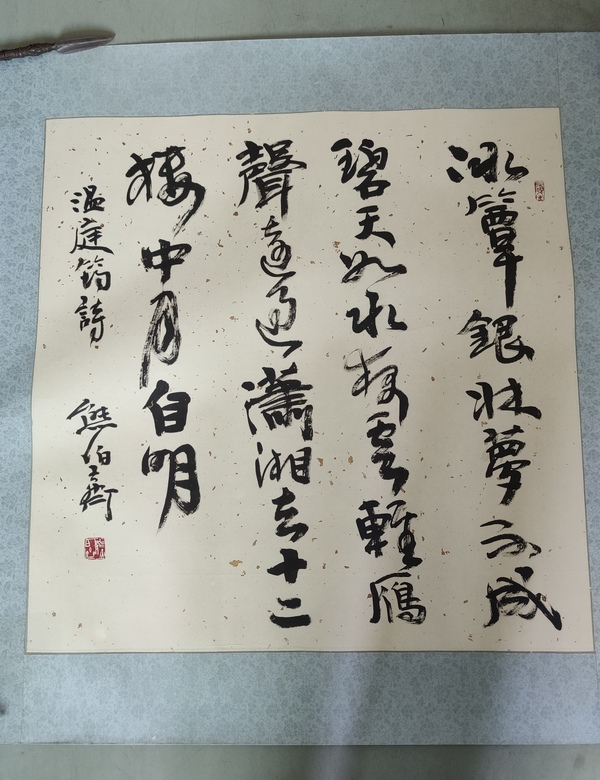 冰簟銀牀夢不成
碧天如水夜雲輕鴈
聲遠過瀟湘去十二
樓中月自明
溫庭筠詩 熊伯齊